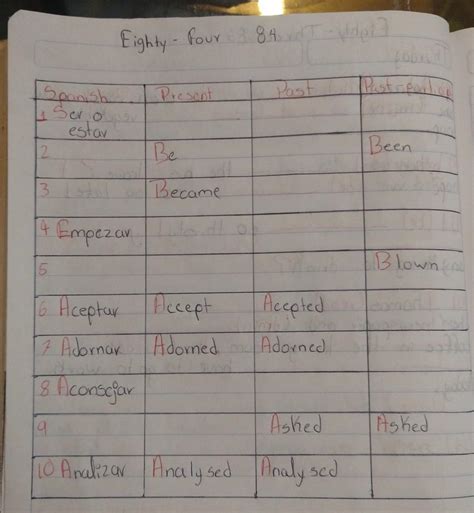 Eighty - Four 84
Spanish Present Past Past participle
1 Ser o
estar
2 Be Been
3 Became
4 Empezar
5 Blown
6 Aceptar Accept Accepted
7 Adornar Adorned Adorned
8 Aconsejar
9 Asked Asked
10 Analizar Analysed Analysed